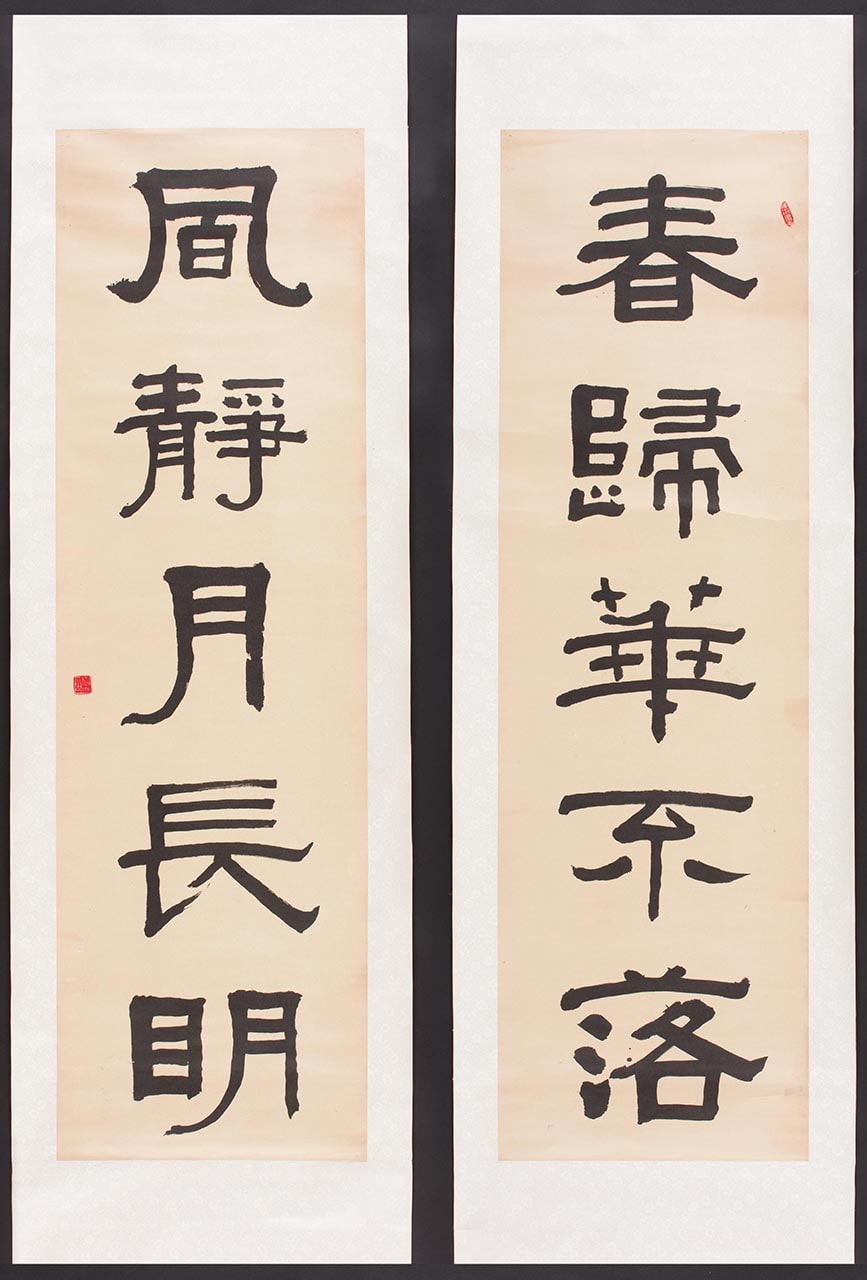 春歸華不落
凬靜月長眀